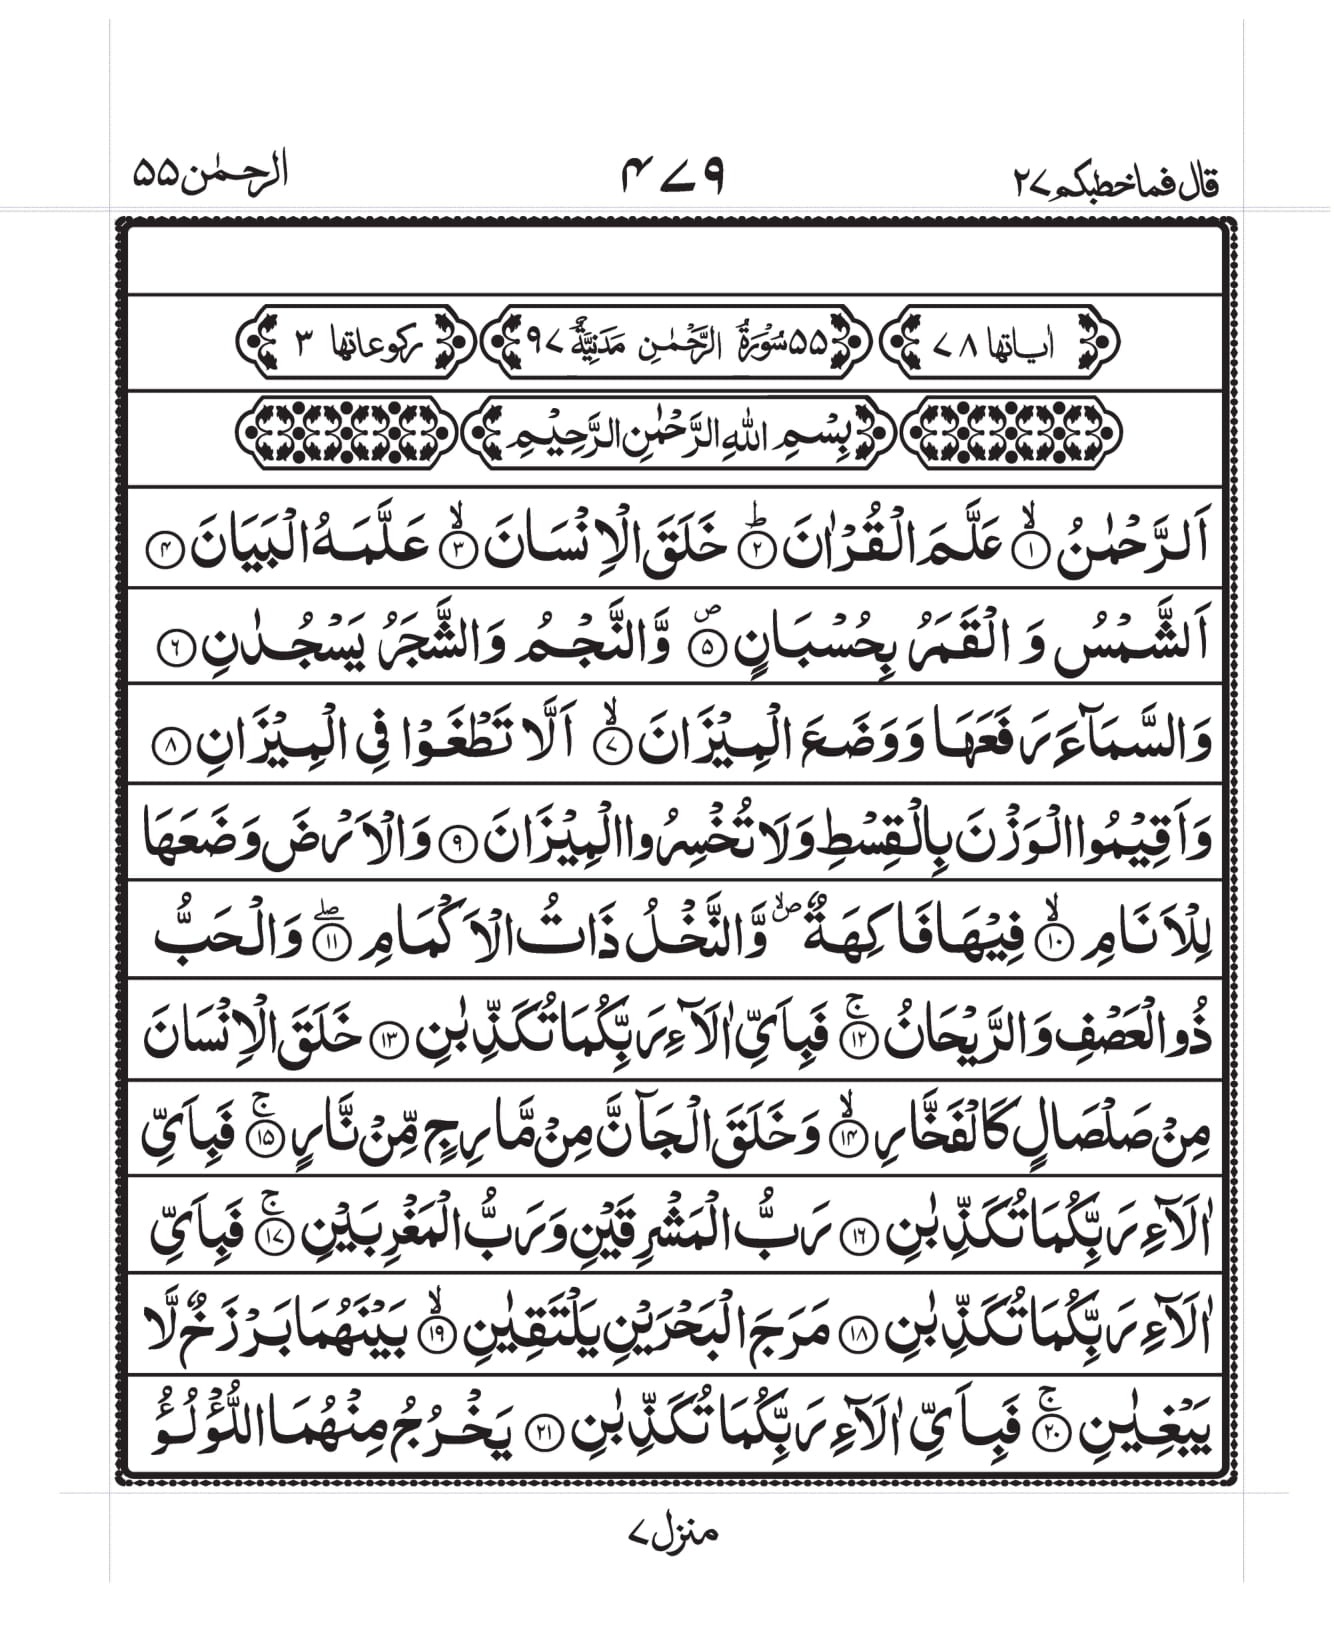 قال فماخطبكم ٢٧ ٤٧٩ الرحمٰن ٥٥
اٰیاتها ٧٨ ٥٥ سُوْرَةُ الرَّحْمٰنِ مَدَنِیَّةٌ ٩٧ رکوعاتها ٣
بِسْمِ اللّٰهِ الرَّحْمٰنِ الرَّحِیْمِ
اَلرَّحْمٰنُ ۙ‏﴿١﴾ عَلَّمَ الْقُرْاٰنَ ؕ‏﴿٢﴾ خَلَقَ الْاِنْسَانَ ۙ‏﴿٣﴾ عَلَّمَهُ الْبَیَانَ ﴿٤﴾
اَلشَّمْسُ وَ الْقَمَرُ بِحُسْبَانٍ ۪‏﴿٥﴾ وَّالنَّجْمُ وَالشَّجَرُ یَسْجُدٰنِ ﴿٦﴾
وَالسَّمَآءَ رَفَعَهَا وَوَضَعَ الْمِیْزَانَ ۙ‏﴿٧﴾ اَلَّا تَطْغَوْا فِی الْمِیْزَانِ ﴿٨﴾
وَاَقِیْمُوا الْوَزْنَ بِالْقِسْطِ وَلَا تُخْسِرُوا الْمِیْزَانَ ﴿٩﴾ وَالْاَرْضَ وَضَعَهَا
لِلْاَنَامِ ۙ‏﴿١٠﴾ فِیْهَا فَاكِهَةٌ ۪ۙ وَّالنَّخْلُ ذَاتُ الْاَكْمَامِ ۖ‏﴿١١﴾ وَالْحَبُّ
ذُو الْعَصْفِ وَالرَّیْحَانُ ۚ‏﴿١٢﴾ فَبِاَیِّ اٰلَآءِ رَبِّكُمَا تُكَذِّبٰنِ ﴿١٣﴾ خَلَقَ الْاِنْسَانَ
مِنْ صَلْصَالٍ كَالْفَخَّارِ ۙ‏﴿١٤﴾ وَخَلَقَ الْجَآنَّ مِنْ مَّارِجٍ مِّنْ نَّارٍ ۚ‏﴿١٥﴾ فَبِاَیِّ
اٰلَآءِ رَبِّكُمَا تُكَذِّبٰنِ ﴿١٦﴾ رَبُّ الْمَشْرِقَیْنِ وَرَبُّ الْمَغْرِبَیْنِ ۚ‏﴿١٧﴾ فَبِاَیِّ
اٰلَآءِ رَبِّكُمَا تُكَذِّبٰنِ ﴿١٨﴾ مَرَجَ الْبَحْرَیْنِ یَلْتَقِیٰنِ ۙ‏﴿١٩﴾ بَیْنَهُمَا بَرْزَخٌ لَّا
یَبْغِیٰنِ ۚ‏﴿٢٠﴾ فَبِاَیِّ اٰلَآءِ رَبِّكُمَا تُكَذِّبٰنِ ﴿٢١﴾ یَخْرُجُ مِنْهُمَا اللُّؤْلُؤُ
منزل ٧